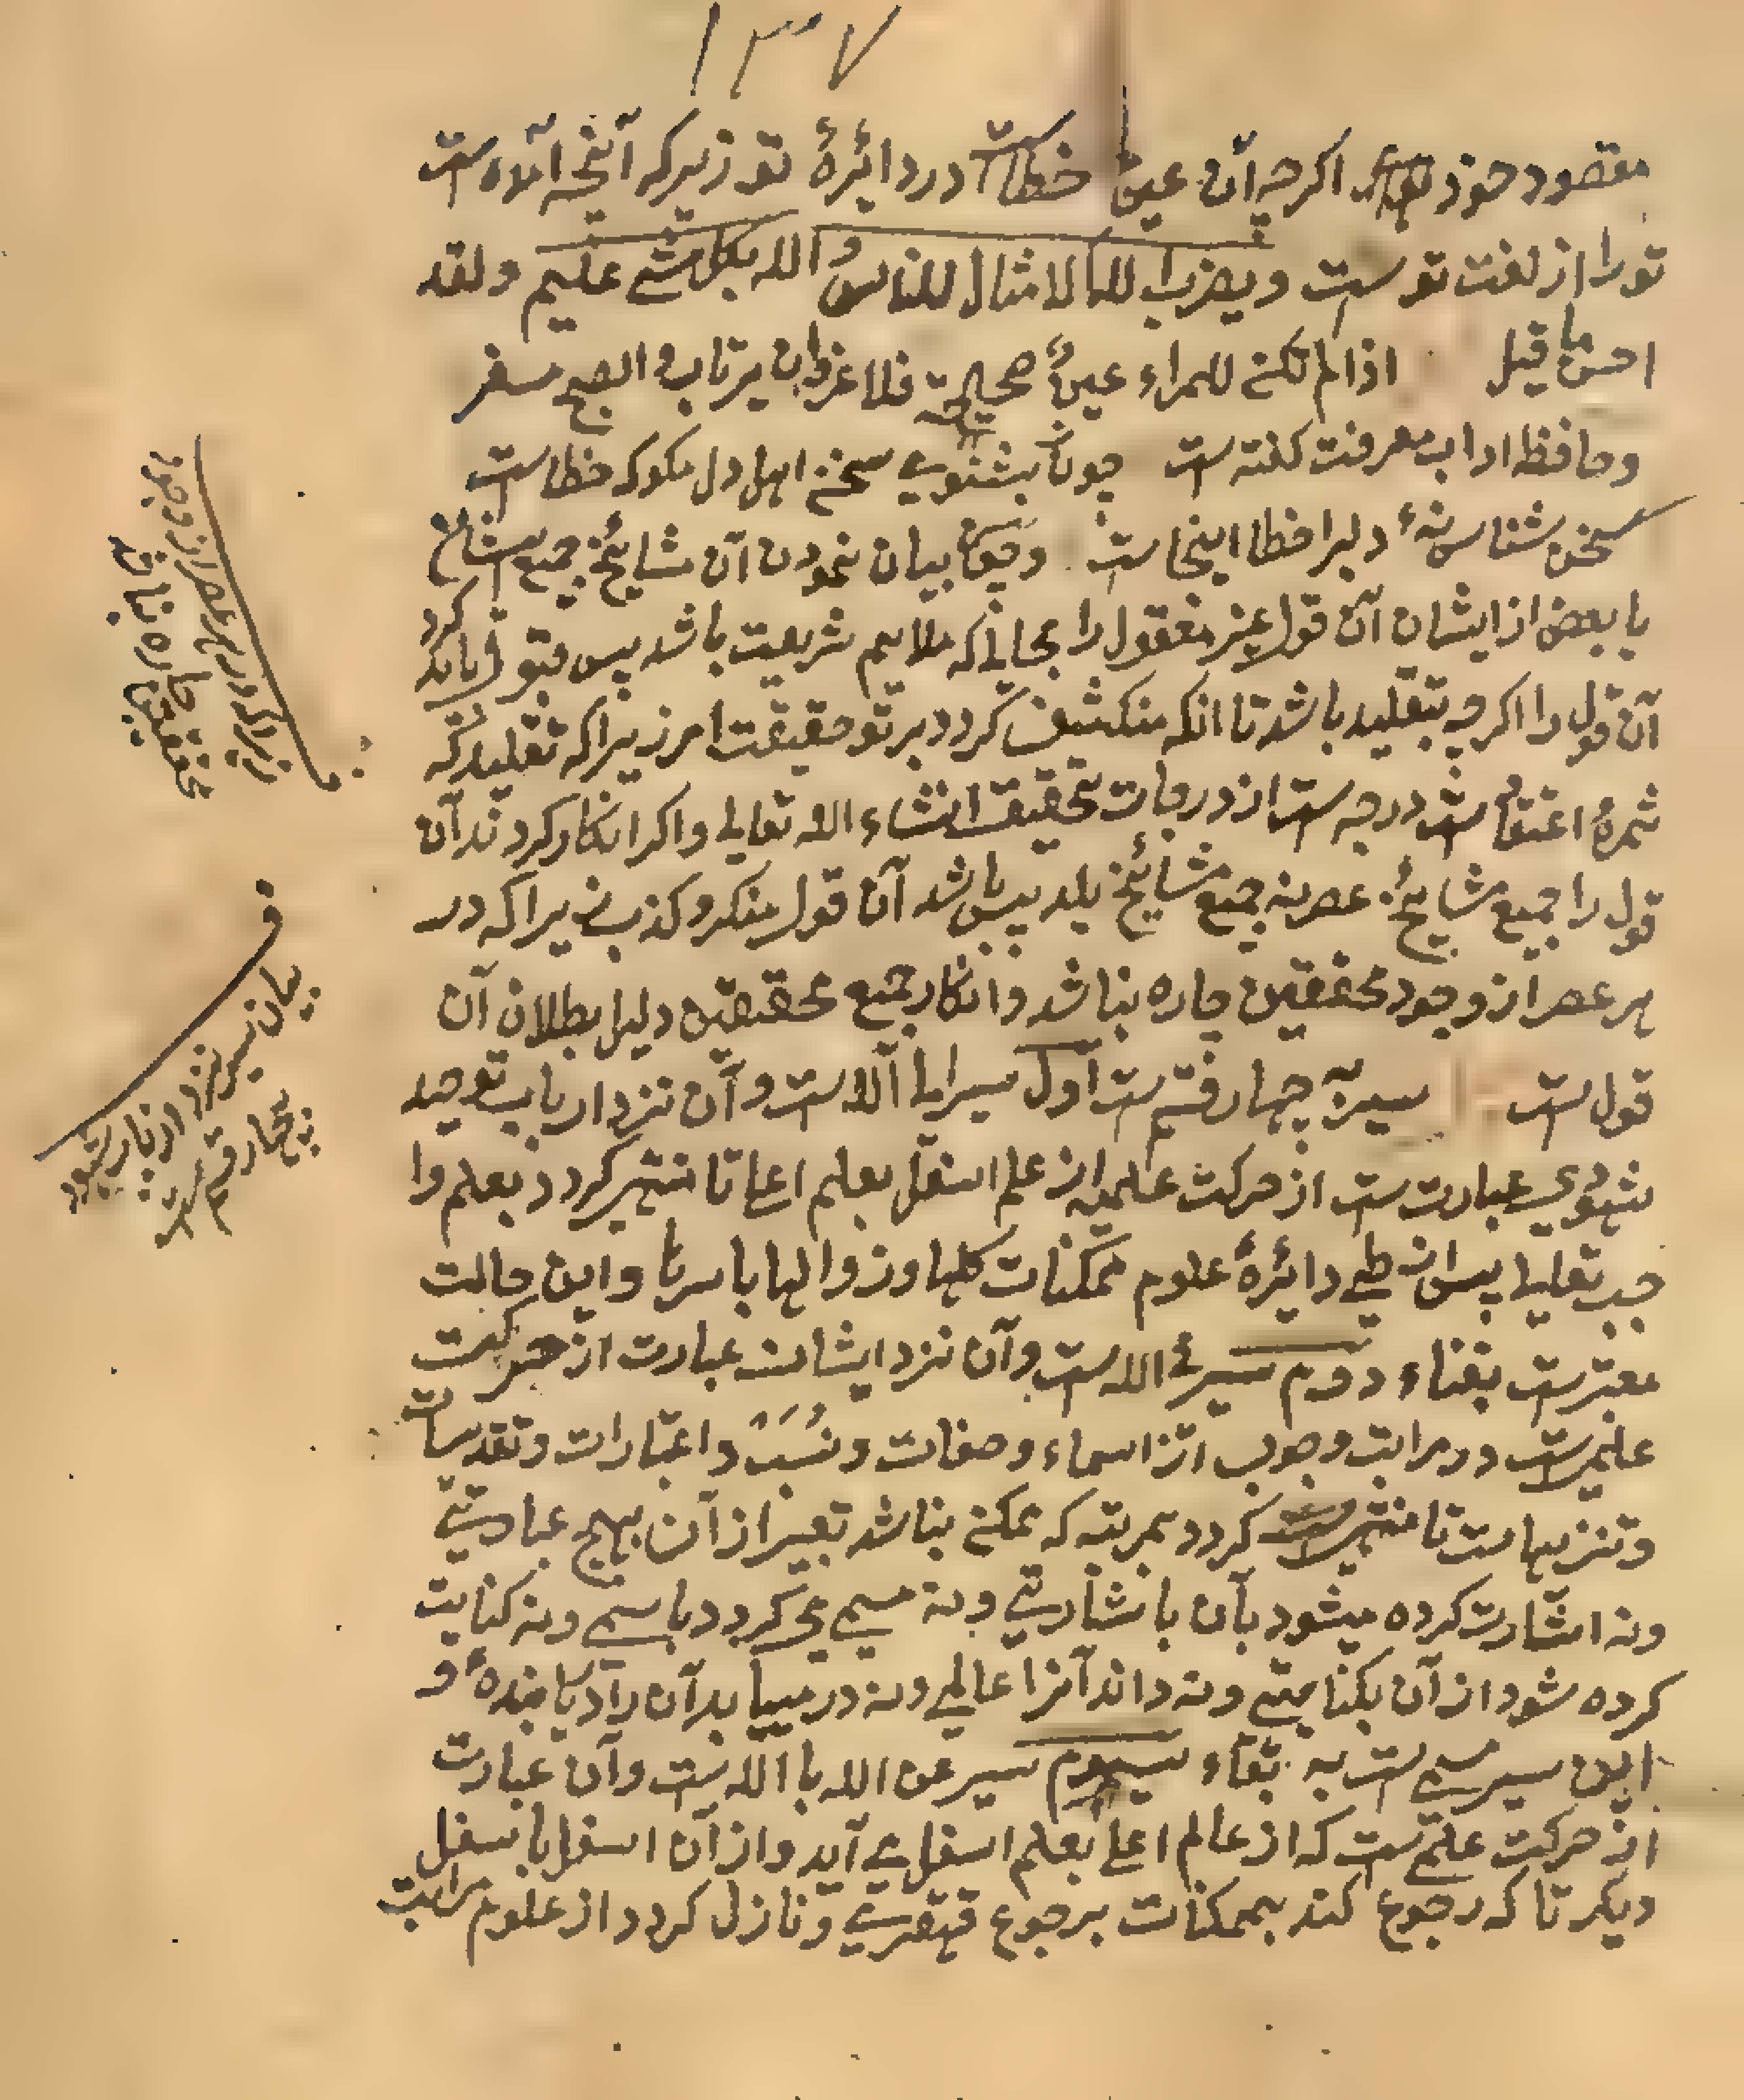 ۱۳۷
مقصود خود اگرچه آن عین خطاست در دائرهٔ تو زیرکه آنچه آمده است
تورا از لغت توست ویضرب الله الامثال للناس والله بکل شئے علیم ولقد
احسن ما قیل اذا لم تکن للمراء عینٌ صحیحة فلا غرو ان یرتاب والصبح مسفر
وحافظ اداب معرفت گفته ست چون بشنوی سخن اهل دل مگو که خطاست
سخن شناس نهٔ دلبرا خطا اینجاست وچون بیان نمودن آن مشایخ جمیع مشایخ
یا بعض از ایشان آن قول غیر معقول را بجایے که ملایم شریعت باشد پس قبول باید کرد
آن قول را اگرچه بتقلید باشد تا انکه منکشف گردد بر تو حقیقت امر زیراکه تقلید که
ثمرهٔ اعتقاد ست درجه ست از درجات تحقیق انشاء الله تعالی واگر انکار کردند آن
قول را جمیع مشایخ عصر نه جمیع مشایخ بلد پس باشد آن قول منکر وکذب زیراکه در
هر عصر از وجود محققین چاره نباشد وانکار جمیع محققین دلیل بطلان آن
قول ست سیر بر چهار قسم ست اول سیر الی الله ست وآن نزد ارباب توحید
شهودی عبارت ست از حرکت علمیه از علم اسفل بعلم اعلی تا منتهی گردد بعلم وا
جب تعالی پس از طی دائرهٔ علوم ممکنات کلها وزوالها باسرها واین حالت
معبر ست بفناء دوم سیر فی الله ست وآن نزد ایشان عبارت از حرکت
علمی ست در مراتب وجوب از اسماء وصفات ونسب واعتبارات وتقدیسات
وتنزیهات تا منتهی گردد بمرتبه که ممکن نباشد تعبیر از آن بهیچ عبارتے
ونه اشارت کرده میشود بآن باشارتے ونه مسمی می گردد باسمے ونه کنایت
کرده شود از آن بکنایتے ونه داند آنرا عالمے ونه در مییابد آن را دریابندهٔ و
این سیر مسمی ست به بقاء سیوم سیر عن الله با الله ست وآن عبارت
از حرکت علمی ست که از عالم اعلی بعلم اسفل می آید واز آن اسفل باسفل
دیگر تا که رجوع کند بممکنات برجوع قهقری ونازل گردد از علوم مراتب
زیراکه در هر عصر از وجود
محققین چاره نباشد
ف
بیان سیر نزد ارباب شهود
بچهار قسم ست